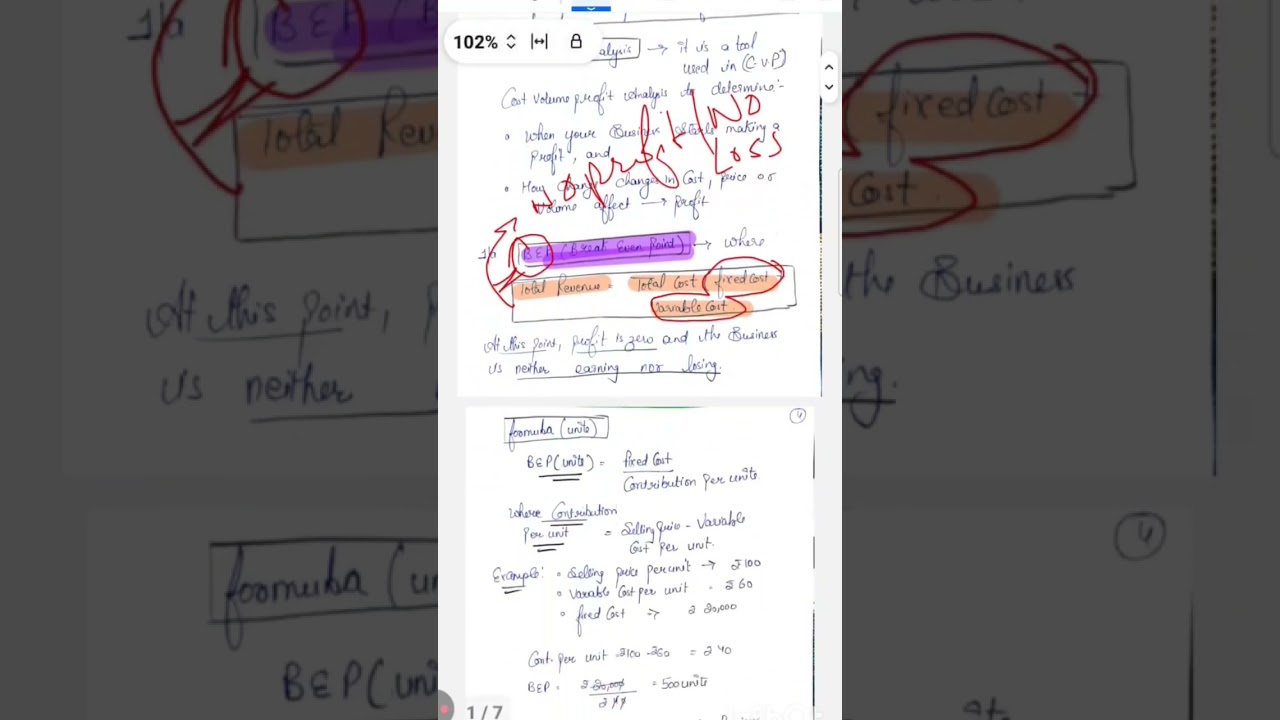 102%
alysis → it is a tool
used in (C.V.P)
Cost Volume profit Analysis to determine:-
• When your Business starts making a
Profit, and
• How changes in Cost, price or
Volume affect → Profit
No profit / No
Loss
BEP (Break Even Point) → where
Total Revenue = Total Cost (fixed Cost +
Variable Cost
At this point, profit is zero and the Business
is neither earning nor losing.
4
foomuba (units)
BEP (units) = fixed Cost
Contribution per units
where Contribution
Per unit = Selling price - Variable
Cost per unit.
Example: • Selling price per unit → ₹100
• Variable Cost per unit = ₹60
• fixed Cost => ₹ 20,000
Cont. per unit = ₹100 - ₹60 = ₹40
BEP = ₹ 20,000 = 500 units
₹ 40
1 / 7